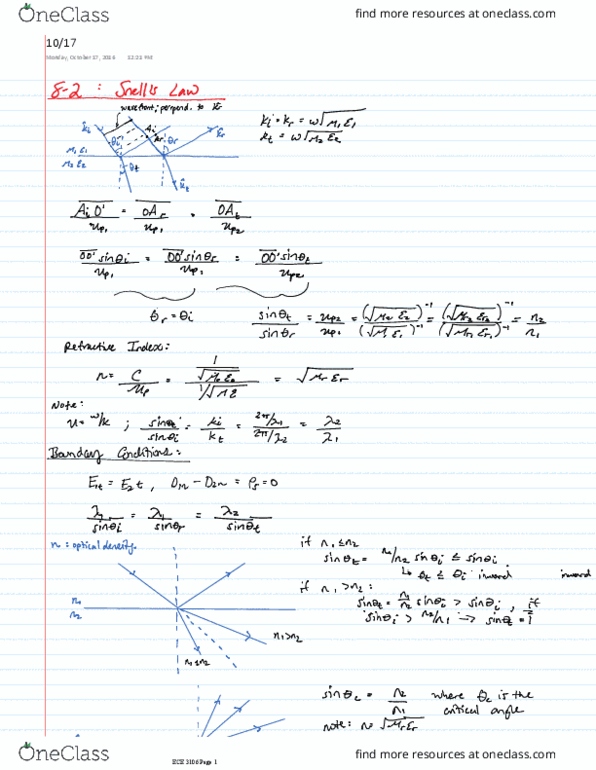 OneClass
find more resources at oneclass.com
10/17
Monday, October 17, 2016 12:21 PM
8-2 : Snell's Law
wavefront; perpend. to k
ki = kr = ω√μ1 ε1
kt = ω√μ2 ε2
Ai
θi
Ar
θr
kr
μ1 ε1
μ2 ε2
θt
kt
AiO'/up1 = OAr/up1 = OAt/up2
OO' sinθi/up1 = OO' sinθr/up1 = OO' sinθt/up2
θr = θi
sinθt/sinθr = up2/up1 = (√μ2 ε2)^-1/(√μ1 ε1)^-1 = (√μr2 εr2)^-1/(√μr1 εr1)^-1 = n2/n1
Refractive Index:
n = c/up = 1/√μ0 ε0 / 1/√με = √μr εr
Note:
u = ω/k ; sinθt/sinθi = ki/kt = 2π/λ1 / 2π/λ2 = λ2/λ1
Boundary Conditions:
E1t = E2t , D1n - D2n = ρs = 0
λ1/sinθi = λ1/sinθr = λ2/sinθt
n : optical density.
if n1 ≤ n2
sinθt = n1/n2 sinθi ≤ sinθi
↳ θt ≤ θi inward
inward
if n1 > n2 :
sinθt = n1/n2 sinθi > sinθi , if
sinθi > n2/n1 → sinθt = 1
n1
n2
n1 > n2
n1 ≤ n2
sinθc = n2/n1 where θc is the
critical angle
note: n = √μr εr
OneClass
ECE 3106 Page 1
find more resources at oneclass.com